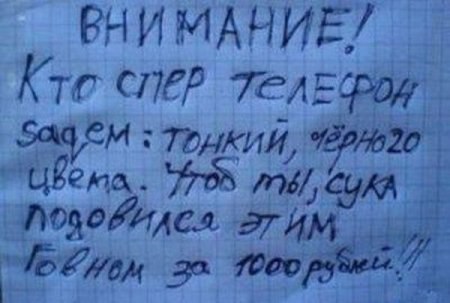 ВНИМАНИЕ!
Кто спер телефон
sagem: тонкий, чёрного
цвета. Чтоб ты, сука
подовился этим
Говном за 1000 рублей!!!